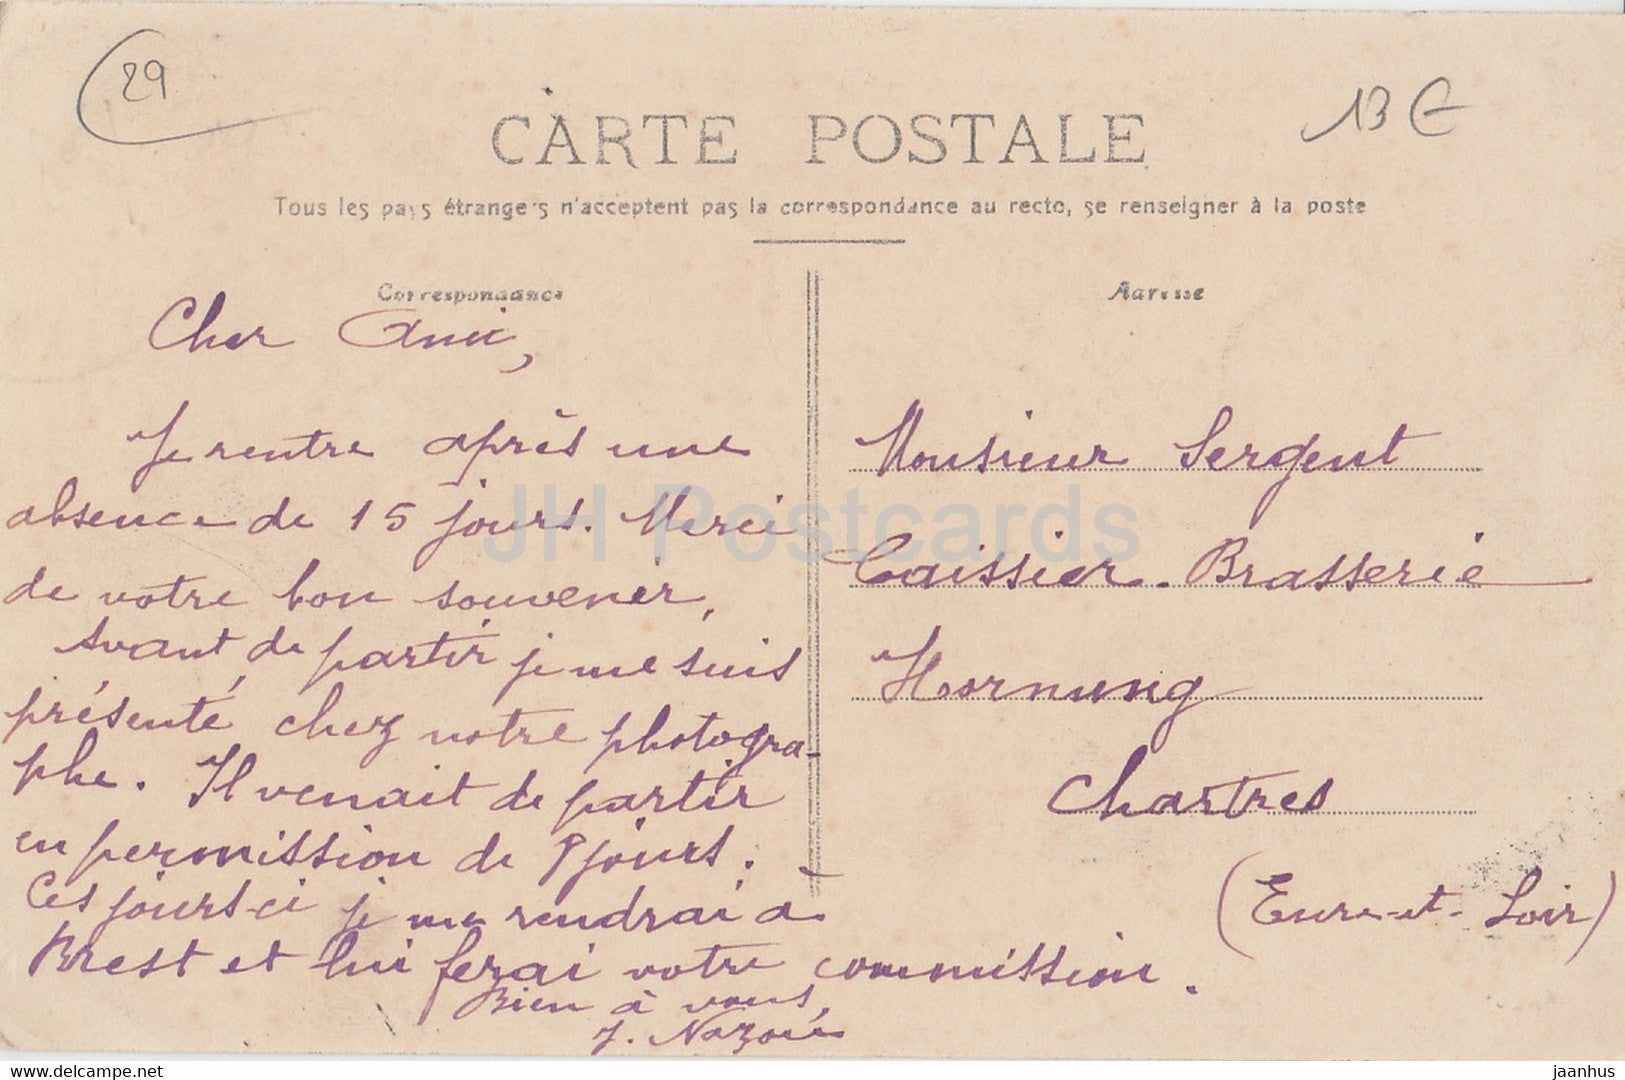 29
13 €
CARTE POSTALE
Tous les pays étrangers n'acceptent pas la correspondance au recto, se renseigner à la poste
Correspondance
Cher Ami,
Je rentre après une
absence de 15 jours. Merci
de votre bon souvenir,
Avant de partir je me suis
présenté chez notre photogra-
phe. Il venait de partir
en permission de 8 jours.
Ces jours-ci je me rendrai à
Brest et lui ferai votre commission.
Bien à vous,
Adresse
Monsieur Sergent
Caissier. Brasserie
Hornung
Chartres
(Eure-et-Loir)
JH Postcards
delcampe.net
jaanhus